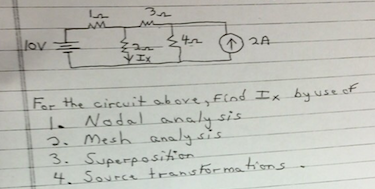 1Ω 3Ω
10V 2Ω 4Ω 2A
Ix
For the circuit above, find Ix by use of
1. Nodal analysis
2. Mesh analysis
3. Superposition
4. Source transformations.